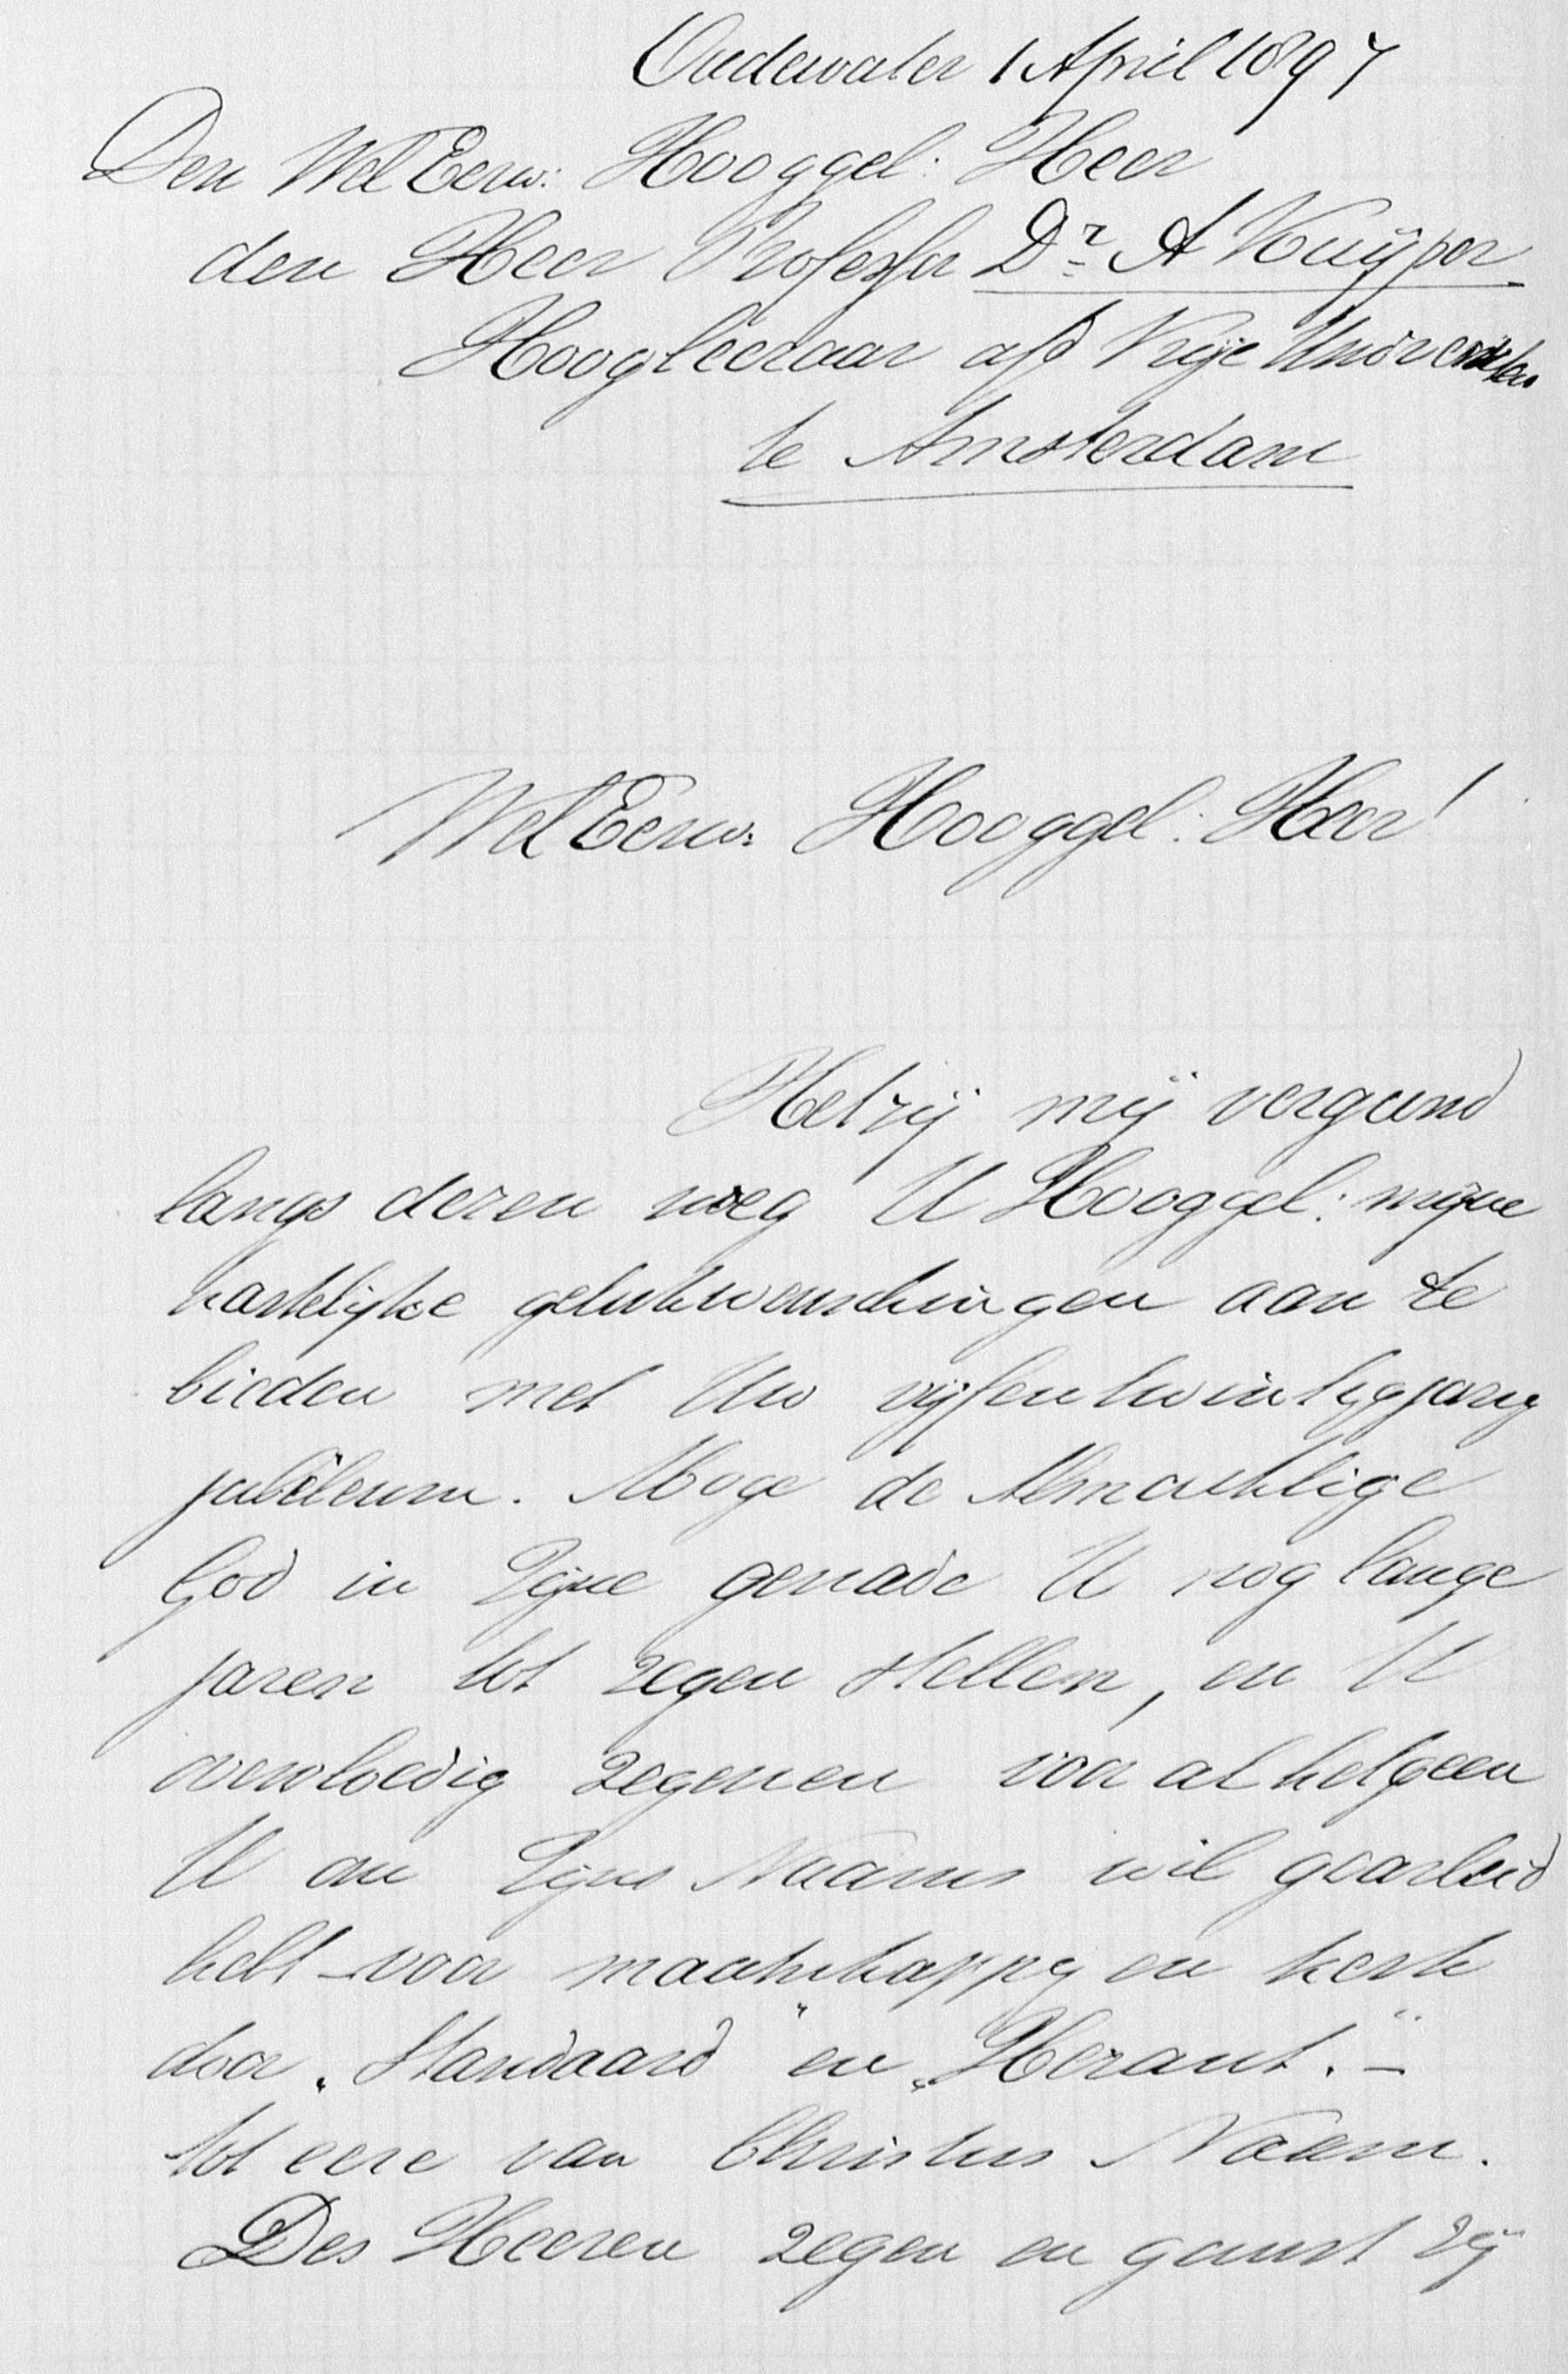 Oudewater 1 April 1897
Den WelEerw: Hooggel: Heer
den Heer Professor Dr. A Kuÿper
Hoogleeraar a/d Vrije Universiteit
te Amsterdam
WelEerw: Hooggel: Heer!
Het zij mij vergund
langs dezen weg U Hooggel: mijne
hartelijke gelukwenschingen aan te
bieden met Uw vijfentwintigjarig
jubileum. Moge de Almachtige
God in Zijne genade U nog lange
jaren tot zegen stellen, en U
overvloedig zegenen voor al hetgeen
U om Zijns Naams wil gearbeid
hebt - voor maatschappij en kerk
door „Standaard" en „Heraut." -
tot eere van Christus Naam.
Des Heeren zegen en gunst zij